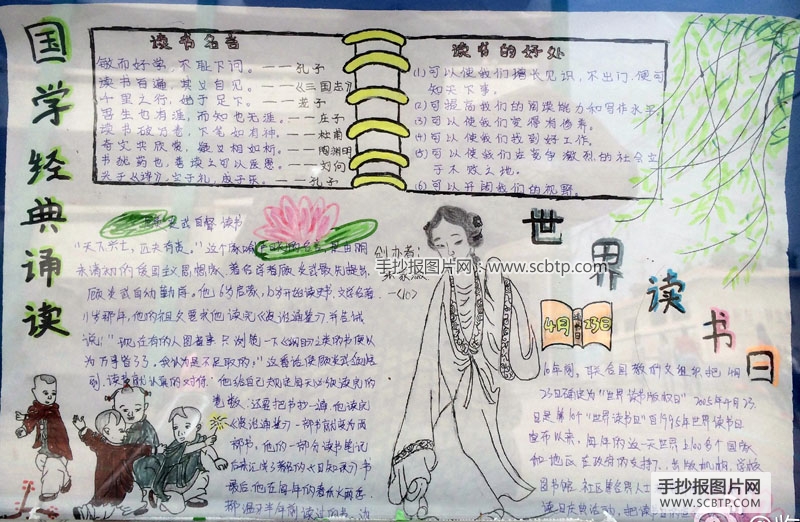 国学经典诵读
读书名言
敏而好学，不耻下问。——孔子
读书百遍，其义自见。——《三国志》
千里之行，始于足下。——老子
吾生也有涯，而知也无涯。——庄子
读书破万卷，下笔如有神。——杜甫
奇文共欣赏，疑义相如析。——陶渊明
书犹药也，善读之可以医愚。——刘向
兴于《诗》，立于礼，成于乐。——孔子
读书的好处
(1)可以使我们增长见识，不出门，便可
知天下事。
(2)可提高我们的阅读能力和写作水平
(3)可以使我们变得有修养。
(4)可以使我们找到好工作。
(5)可以使我们在竞争激烈的社会立
于不败之地。
(6)可以开阔我们的视野。
顾炎武自督读书
"天下兴亡，匹夫有责。"这个
永清初的爱国主义思想家、著名学者顾炎武最先提
顾炎武自幼勤学。他6岁启蒙，10岁开始读史书、文学名著
11岁那年，他的祖父要求他读完《资治通鉴》并告诫
说："现在有的人图省事，只浏览一下《纲目》之类的书便以
为万事皆了了，我认为是不足取的。"这番话使顾炎武领悟
到，读书做学问认真对待
他给自己规定每天必须读完的
这要把书抄一遍，他读完
《资治通鉴》一部书就变为两
部书，他的一部分读书笔记
后来汇成了著名的《日知录》书
最后，他在每年的春秋
都温习半年前读过的书，边
创办者：
手抄报图片网：www.scbtp.com
世界读书日
4月23日
16年间，联合国教科文组织把4月
23日确定为"世界读书版权日"2015年4月23
日是第个"世界读书日"自1995年世界读书日
宣布以来，每年的这一天世界上100多个国家
和地区在政府的支持下，出版机构、学校
图书馆、社区等各界人士
读日庆典活动，把读
手抄报图片网
WWW.SCBTP.COM